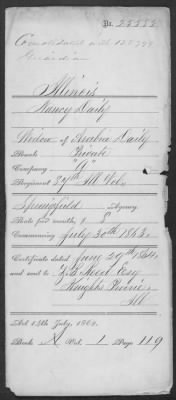 No. 25552
Consolidated with 127,799
Guardian
Illinois
Nancy Daily
Widow of Daily
Rank Private
Company "G"
Regiment 37th Ill Vols
Springfield Agency
Rate per month, $ 8
Commencing July 30th 1863.
Certificate dated June 29th 1864,
and sent to Esq
Knights Prairie,
Ill
Act 14th July, 1862.
Book A Vol. 1 Page 119